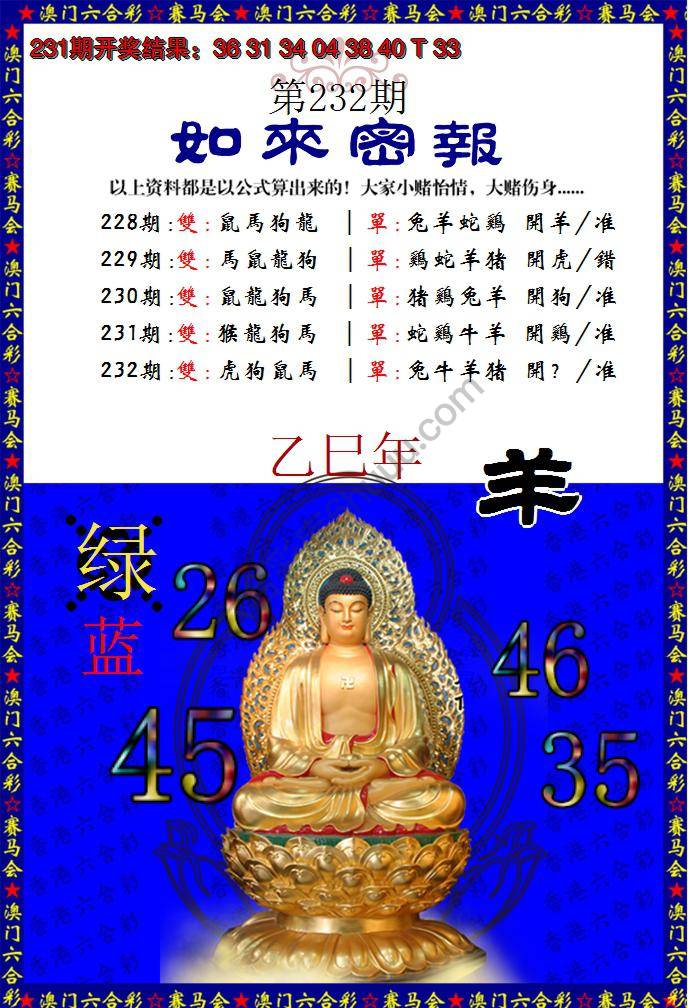 ★澳门六合彩☆赛马会★澳门六合彩☆赛马会★澳门六合彩☆赛马会★
231期开奖结果：36 31 34 04 38 40 T 33
第232期
如來密報
以上资料都是以公式算出来的！大家小赌怡情，大赌伤身......
228期:雙：鼠馬狗龍 ｜單：兔羊蛇鷄 開羊/准
229期:雙：馬鼠龍狗 ｜單：鷄蛇羊猪 開虎/錯
230期:雙：鼠龍狗馬 ｜單：猪鷄兔羊 開狗/准
231期:雙：猴龍狗馬 ｜單：蛇鷄牛羊 開鷄/准
232期:雙：虎狗鼠馬 ｜單：兔牛羊猪 開？/准
乙巳年
羊
绿
蓝
26
46
45
35
香港六合彩
★澳门六合彩☆赛马会★澳门六合彩☆赛马会★澳门六合彩☆赛马会★